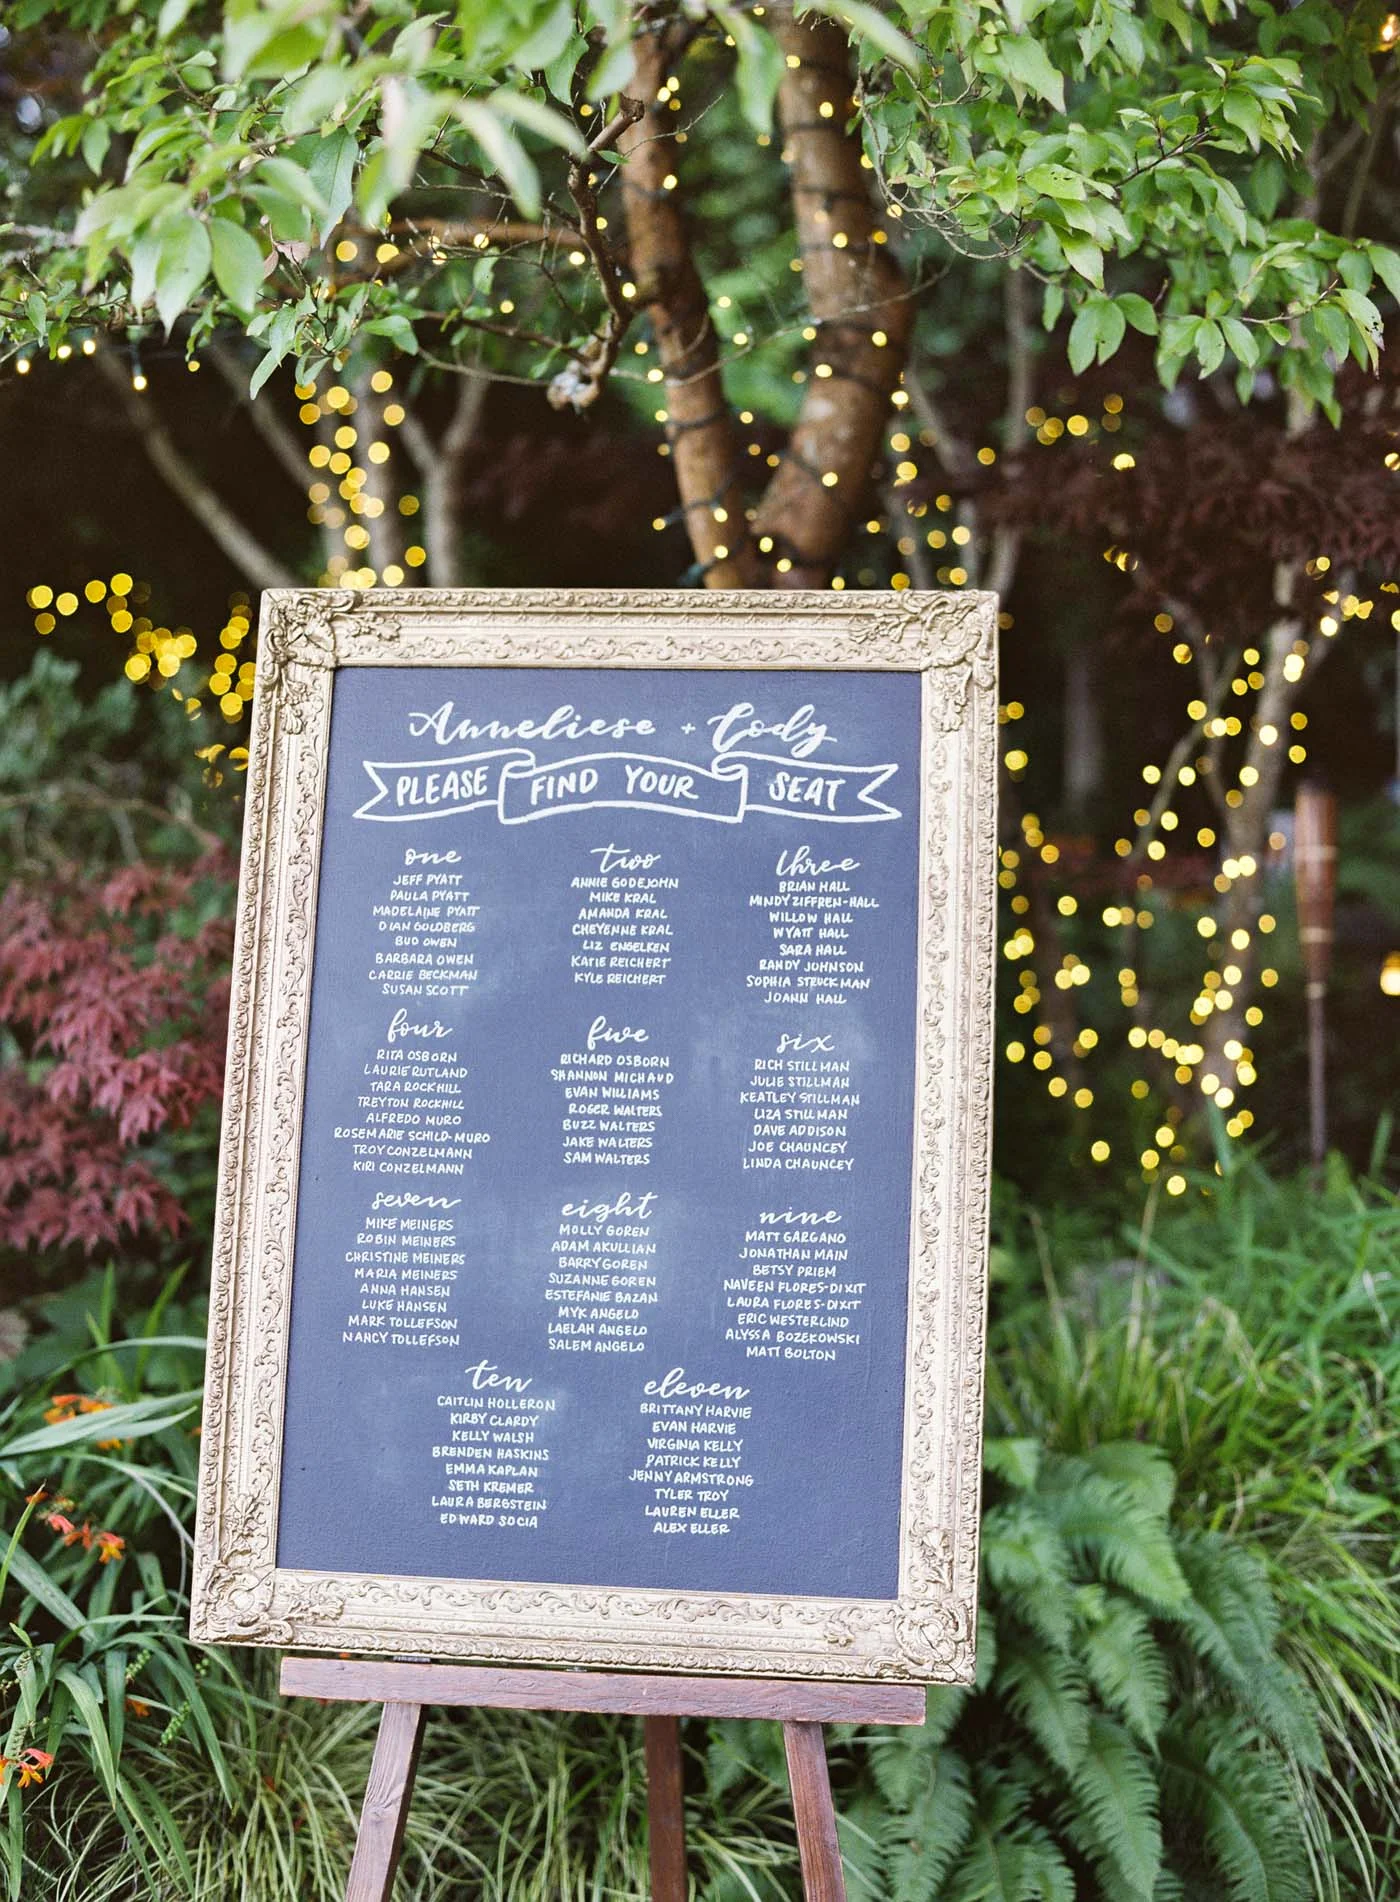 Anneliese + Cody
PLEASE FIND YOUR SEAT
one
JEFF PYATT
PAULA PYATT
MADELAINE PYATT
DIAN GOLDBERG
BUD OWEN
BARBARA OWEN
CARRIE BECKMAN
SUSAN SCOTT
two
ANNIE GODEJOHN
MIKE KRAL
AMANDA KRAL
CHEYENNE KRAL
LIZ ENGELKEN
KATIE REICHERT
KYLE REICHERT
three
BRIAN HALL
MINDY ZIFFREN-HALL
WILLOW HALL
WYATT HALL
SARA HALL
RANDY JOHNSON
SOPHIA STRUCKMAN
JOANN HALL
four
RITA OSBORN
LAURIE RUTLAND
TARA ROCKHILL
TREYTON ROCKHILL
ALFREDO MURO
ROSEMARIE SCHILD-MURO
TROY CONZELMANN
KIRI CONZELMANN
five
RICHARD OSBORN
SHANNON MICHAUD
EVAN WILLIAMS
ROGER WALTERS
BUZZ WALTERS
JAKE WALTERS
SAM WALTERS
six
RICH STILLMAN
JULIE STILLMAN
KEATLEY STILLMAN
LIZA STILLMAN
DAVE ADDISON
JOE CHAUNCEY
LINDA CHAUNCEY
seven
MIKE MEINERS
ROBIN MEINERS
CHRISTINE MEINERS
MARIA MEINERS
ANNA HANSEN
LUKE HANSEN
MARK TOLLEFSON
NANCY TOLLEFSON
eight
MOLLY GOREN
ADAM AKULLIAN
BARRY GOREN
SUZANNE GOREN
ESTEFANIE BAZAN
MYK ANGELO
LAELAH ANGELO
SALEM ANGELO
nine
MATT GARGANO
JONATHAN MAIN
BETSY PRIEM
NAVEEN FLORES-DIXIT
LAURA FLORES-DIXIT
ERIC WESTERLIND
ALYSSA BOZEKOWSKI
MATT BOLTON
ten
CAITLIN HOLLERON
KIRBY CLARDY
KELLY WALSH
BRENDEN HASKINS
EMMA KAPLAN
SETH KREMER
LAURA BERGSTEIN
EDWARD SOCIA
eleven
BRITTANY HARVIE
EVAN HARVIE
VIRGINIA KELLY
PATRICK KELLY
JENNY ARMSTRONG
TYLER TROY
LAUREN ELLER
ALEX ELLER